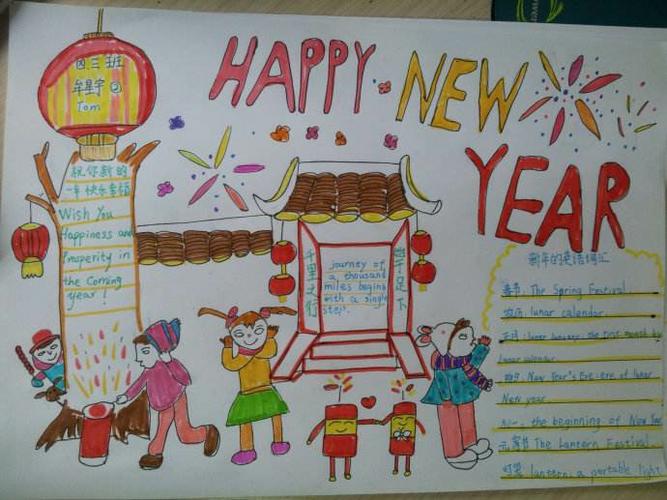 四三班
牟星宇 ②
Tom
HAPPY NEW
YEAR
祝你新的
一年快乐幸福
Wish You
Happiness and
Prosperity in
the Coming
year !
千里之行
始于足下
journey of
a thousand
miles begins
with a single
step.
新年的英语词汇
春节: The Spring Festival
农历: lunar calendar
正月: lunar January; the first month by
lunar calendar
除夕: New Year's Eve; eve of lunar
New year
初一: the beginning of New Year
元宵节 The Lantern Festival
灯笼 lantern: a portable light